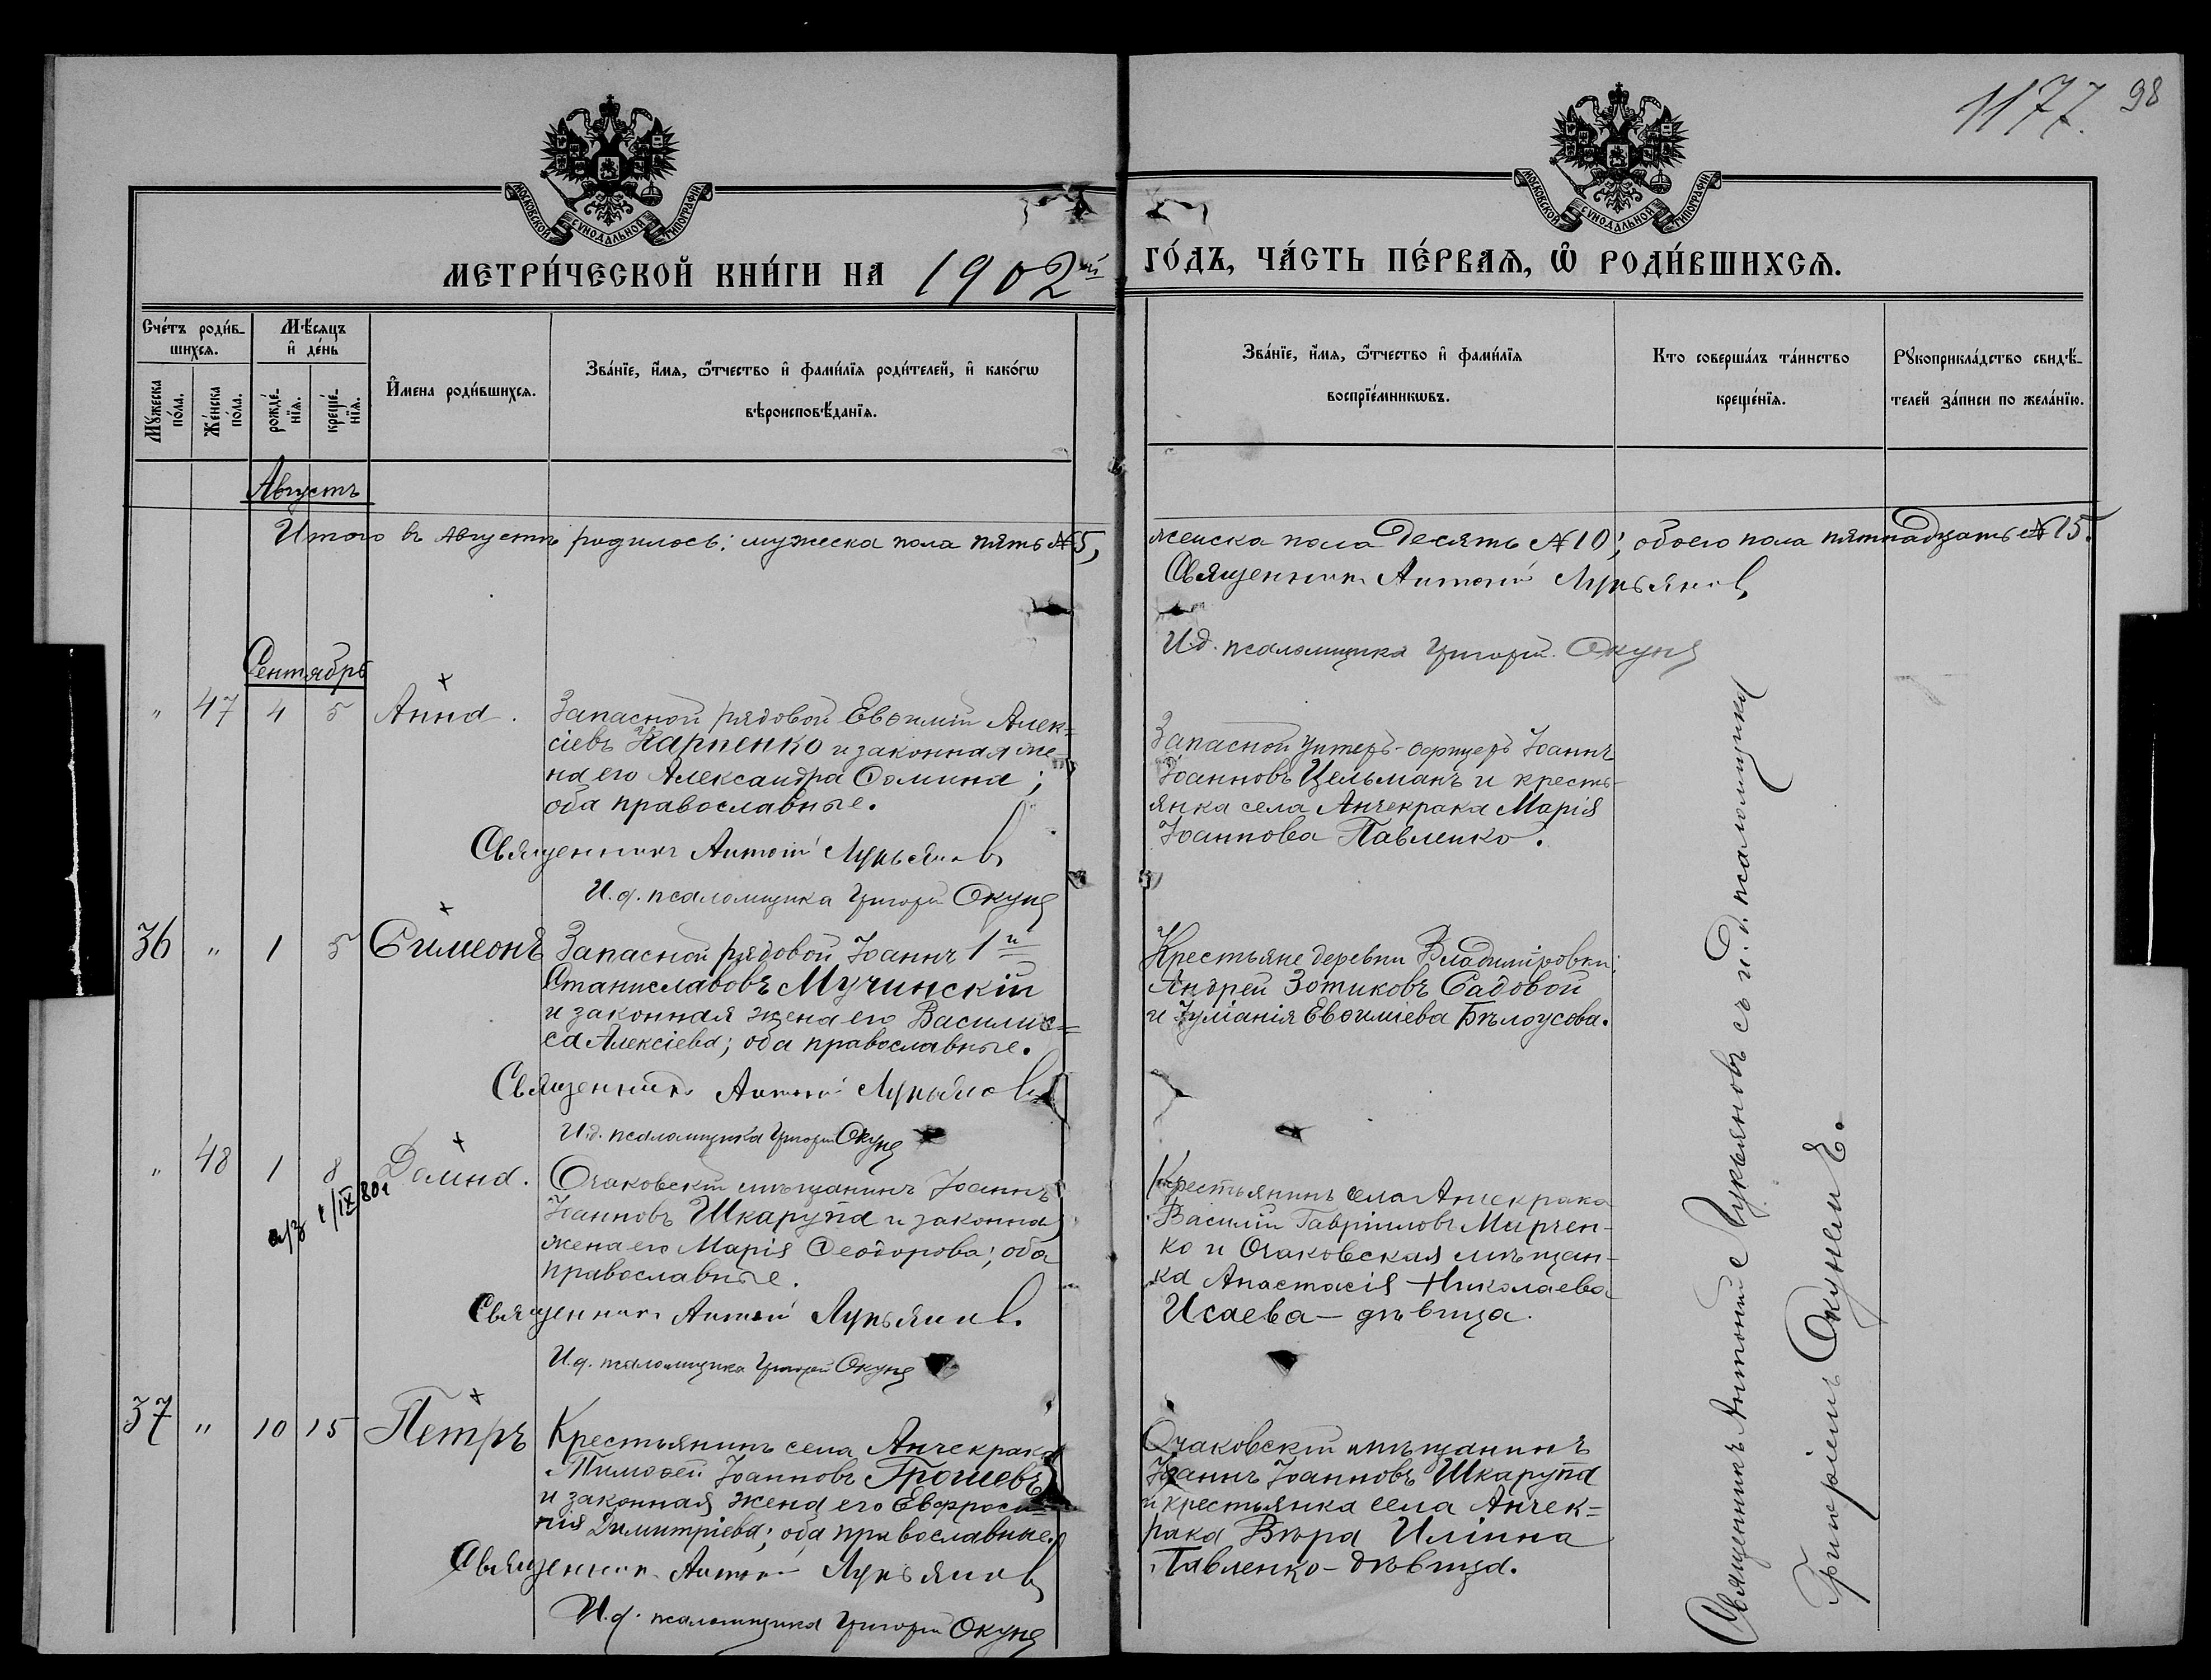 1177. 98
МОСКОВСКОЙ СѴНОДАЛЬНОЙ ТИПОГРАФІИ
МОСКОВСКОЙ СѴНОДАЛЬНОЙ ТИПОГРАФІИ
МЕТРИ́ЧЕСКОЙ КНИ́ГИ НА 1902й ГО́ДЪ, ЧА́СТЬ ПЕ́РВАѦ, Ѡ РОДИ́ВШИХСѦ.
Сче́тъ роди́в-
шихсѧ.
Мꙋжеска по́ла.
Же́нска по́ла.
Мѣ́сѧцъ
и҆ де́нь
рожде́-
нїѧ.
креще́-
нїѧ.
И҆мена роди́вшихсѧ.
Зва́нїе, и҆́мѧ, ѻ҆́тчество и҆ фами́лїѧ роди́телей, и҆ како́гѡ
вѣроисповѣ́данїѧ.
Зва́нїе, и҆́мѧ, ѻ҆́тчество и҆ фами́лїѧ
воспрїе́мникѡвъ.
Кто соверша́лъ та́инство
креще́нїѧ.
Рꙋкоприкла́дство свидѣ́-
телей за́писи по жела́нїю.
Августъ
Итого въ августѣ родилось: мужеска пола пять №5, женска пола десять №10; обоего пола пятнадцать №15.
Священникъ Антоній Лукьяновъ
И.д. псаломщика Григорій Окунь
Сентябрь
" 47 4 5 Анна.
Запасной рядовой Евѳимій Алек-
сіевъ Карпенко и законная же-
на его Александра Ѳомина;
оба православные.
Священникъ Антоній Лукьяновъ
И.д. псаломщика Григорій Окунь
Запасной унтеръ-офицеръ Іоаннъ
Іоанновъ Цельманъ и кресть-
янка села Анчекрака Марія
Іоаннова Павленко.
36 " 1 5 Симеонъ
Запасной рядовой Іоаннъ 1й
Станиславовъ Мучинскій
и законная жена его Василис-
са Алексіева; оба православные.
Священникъ Антоній Лукьяновъ
И.д. псаломщика Григорій Окунь
Крестьяне деревни Владиміровки:
Андрей Зотиковъ Садовой
и Іуліанія Евѳиміева Бѣлоусова.
" 48 1 8 Домна.
Очаковскій мѣщанинъ Іоаннъ
Іоанновъ Шкарупа и законна
жена его Марія Ѳеодорова; оба
православные.
Священникъ Антоній Лукьяновъ
И.д. псаломщика Григорій Окунь
Крестьянинъ села Анчекрака
Василій Гавріиловъ Мирчен-
ко и Очаковская мѣщан-
ка Анастасія Николаева
Исаева - дѣвица.
37 " 10 15 Петръ
Крестьянинъ села Анчекрака
Тимоѳей Іоанновъ Грошевъ
и законная жена его Евфроси-
нія Димитріева; оба православные.
Священникъ Антоній Лукьяновъ
И.д. псаломщика Григорій Окунь
Очаковскій мѣщанинъ
Іоаннъ Іоанновъ Шкарупа
и крестьянка села Анчек-
рака Вѣра Иліина
Павленко - дѣвица.
Священникъ Антоній Лукьяновъ съ и.д. псаломщика
Григоріемъ Окунемъ.